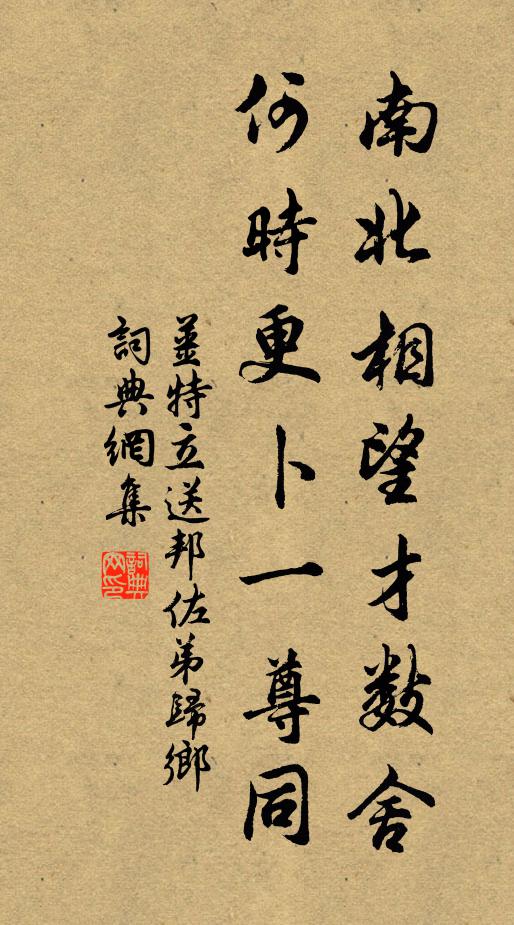 南北相望才数舍
何時更卜一尊同
薑特立送邦佐弟歸鄉
詞典網集
詞典網印